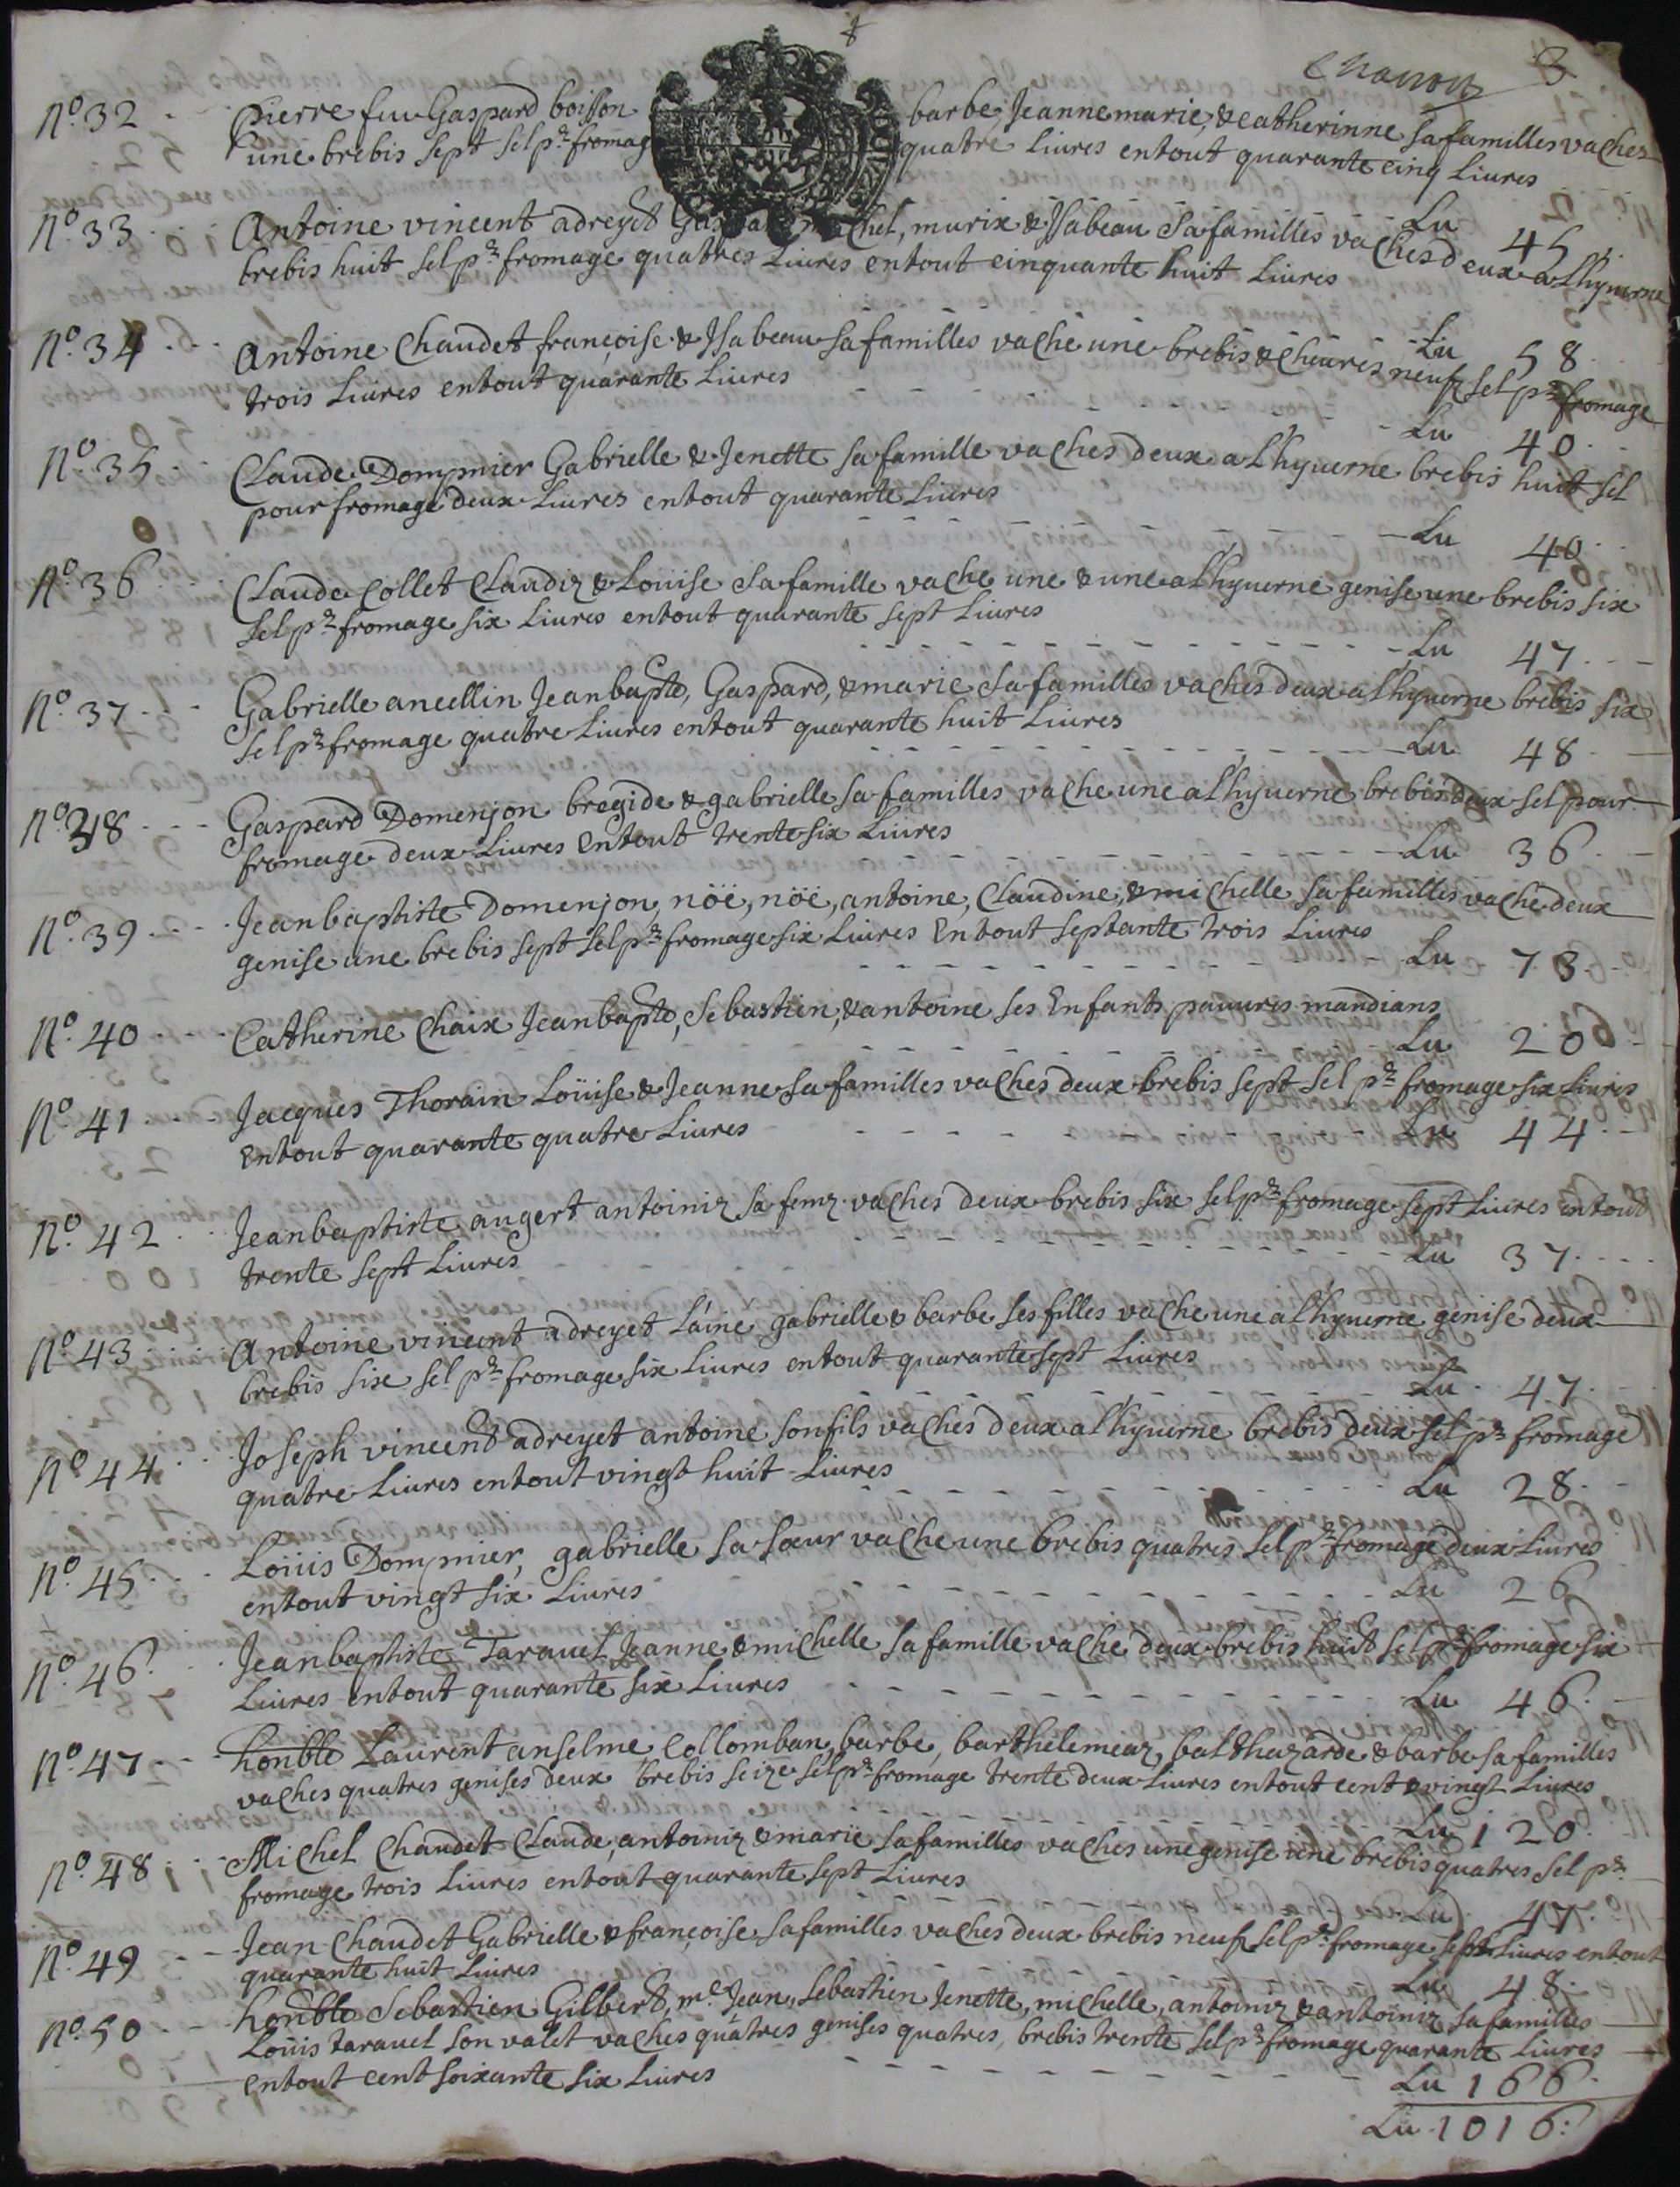 8
3
N.º 32 Pierre feu Gaspard boisson barbe, Jeannemarie, & catherinne sa familles vaches
une brebis sept sel pr fromage quatre liures entout quarante cinq liures
Lu 45
N.º 33 Antoine vincent adreyet Gaspard michel, & Jsabeau sa familles vaches deux a lhyuerne
brebis huit sel pr fromage quatres liures entout cinquante huit liures
Lu 58
N.º 34 Antoine Chaudet françoise & Jsabeau sa familles vache une brebis & cheures neuf sel pr fromage
trois liures entout quarante liures
Lu 40
N.º 35 Claude Dompnier Gabrielle & Jenette sa famille vaches deux a lhyuerne brebis huit sel
pour fromage deux liures entout quarante liures
Lu 40
N.º 36 Claude Collet Claudiz & Loüise sa famille vache une & une a lhyuerne genise une brebis six
sel pr fromage six liures entout quarante sept liures
Lu 47
N.º 37 Gabrielle ancellin Jeanbapte, Gaspard, & marie sa familles vaches deux a lhyuerne brebis six
sel pr fromage quatre liures entout quarante huit liures
Lu 48
N.º 38 Gaspard Domenjon bregide & gabrielle sa familles vache une a lhyuerne brebis deux sel pour
fromage deux liures Entout trente six liures
Lu 36
N.º 39 Jeanbaptiste Domenjon, nöé, nöé, antoine, Claudine, & michelle sa familles vache deux
genise une brebis sept sel pr fromage six liures Entout septante trois liures
Lu 73
N.º 40 Catherine Chaix Jeanbapte, Sebastien, & antoine ses Enfants pauures mandians
Lu 20
N.º 41 Jacques Thorain Loüise & Jeanne sa familles vaches deux brebis sept sel pr fromage six liures
Entout quarante quatre liures
Lu 44
N.º 42 Jeanbaptiste augert antoiniz sa femz vaches deux brebis six sel pr fromage sept liures entout
trente sept liures
Lu 37
N.º 43 Antoine vincent adreyet láiné gabrielle & barbe ses filles vache une a lhyuerne genise deux
brebis six sel pr fromage six liures entout quarante sept liures
Lu 47
N.º 44 Joseph vincent adreyet antoine son fils vaches deux a lhyuerne brebis deux sel pr fromage
quatre liures entout vingt huit liures
Lu 28
N.º 45 Loüis Dompnier, gabrielle sa sœur vache une brebis quatres sel pr fromage deux liures
entout vingt six liures
Lu 26
N.º 46 Jeanbaptiste Tarauel Jeanne & michelle sa famille vache deux brebis huit sel pr fromage six
liures entout quarante six liures
Lu 46
N.º 47 honble Laurent anselme, Collomban, barbe, barthelemiaz, balthazarde & barbe sa familles
vaches quatres genises deux brebis seize sel pr fromage trente deux liures entout cent & vingt liures
Lu 120
N.º 48 Michel Chaudet Claude, antoiniz & marie sa familles vaches une genise une brebis quatres sel pr
fromage trois liures entout quarante sept liures
Lu 47
N.º 49 Jean Chaudet Gabrielle & françoise sa familles vaches deux brebis neuf sel pr fromage sept liures entout
quarante huit liures
Lu 48
N.º 50 honble Sebastien Gilbert, me Jean, Sebastien Jenette, michelle, antoiniz & antoiniz sa familles
Loüis Tarauel son valet vaches quatres genises quatres, brebis trente sel pr fromage quarante liures
entout cent soixante six liures
Lu 166
Lu 1016